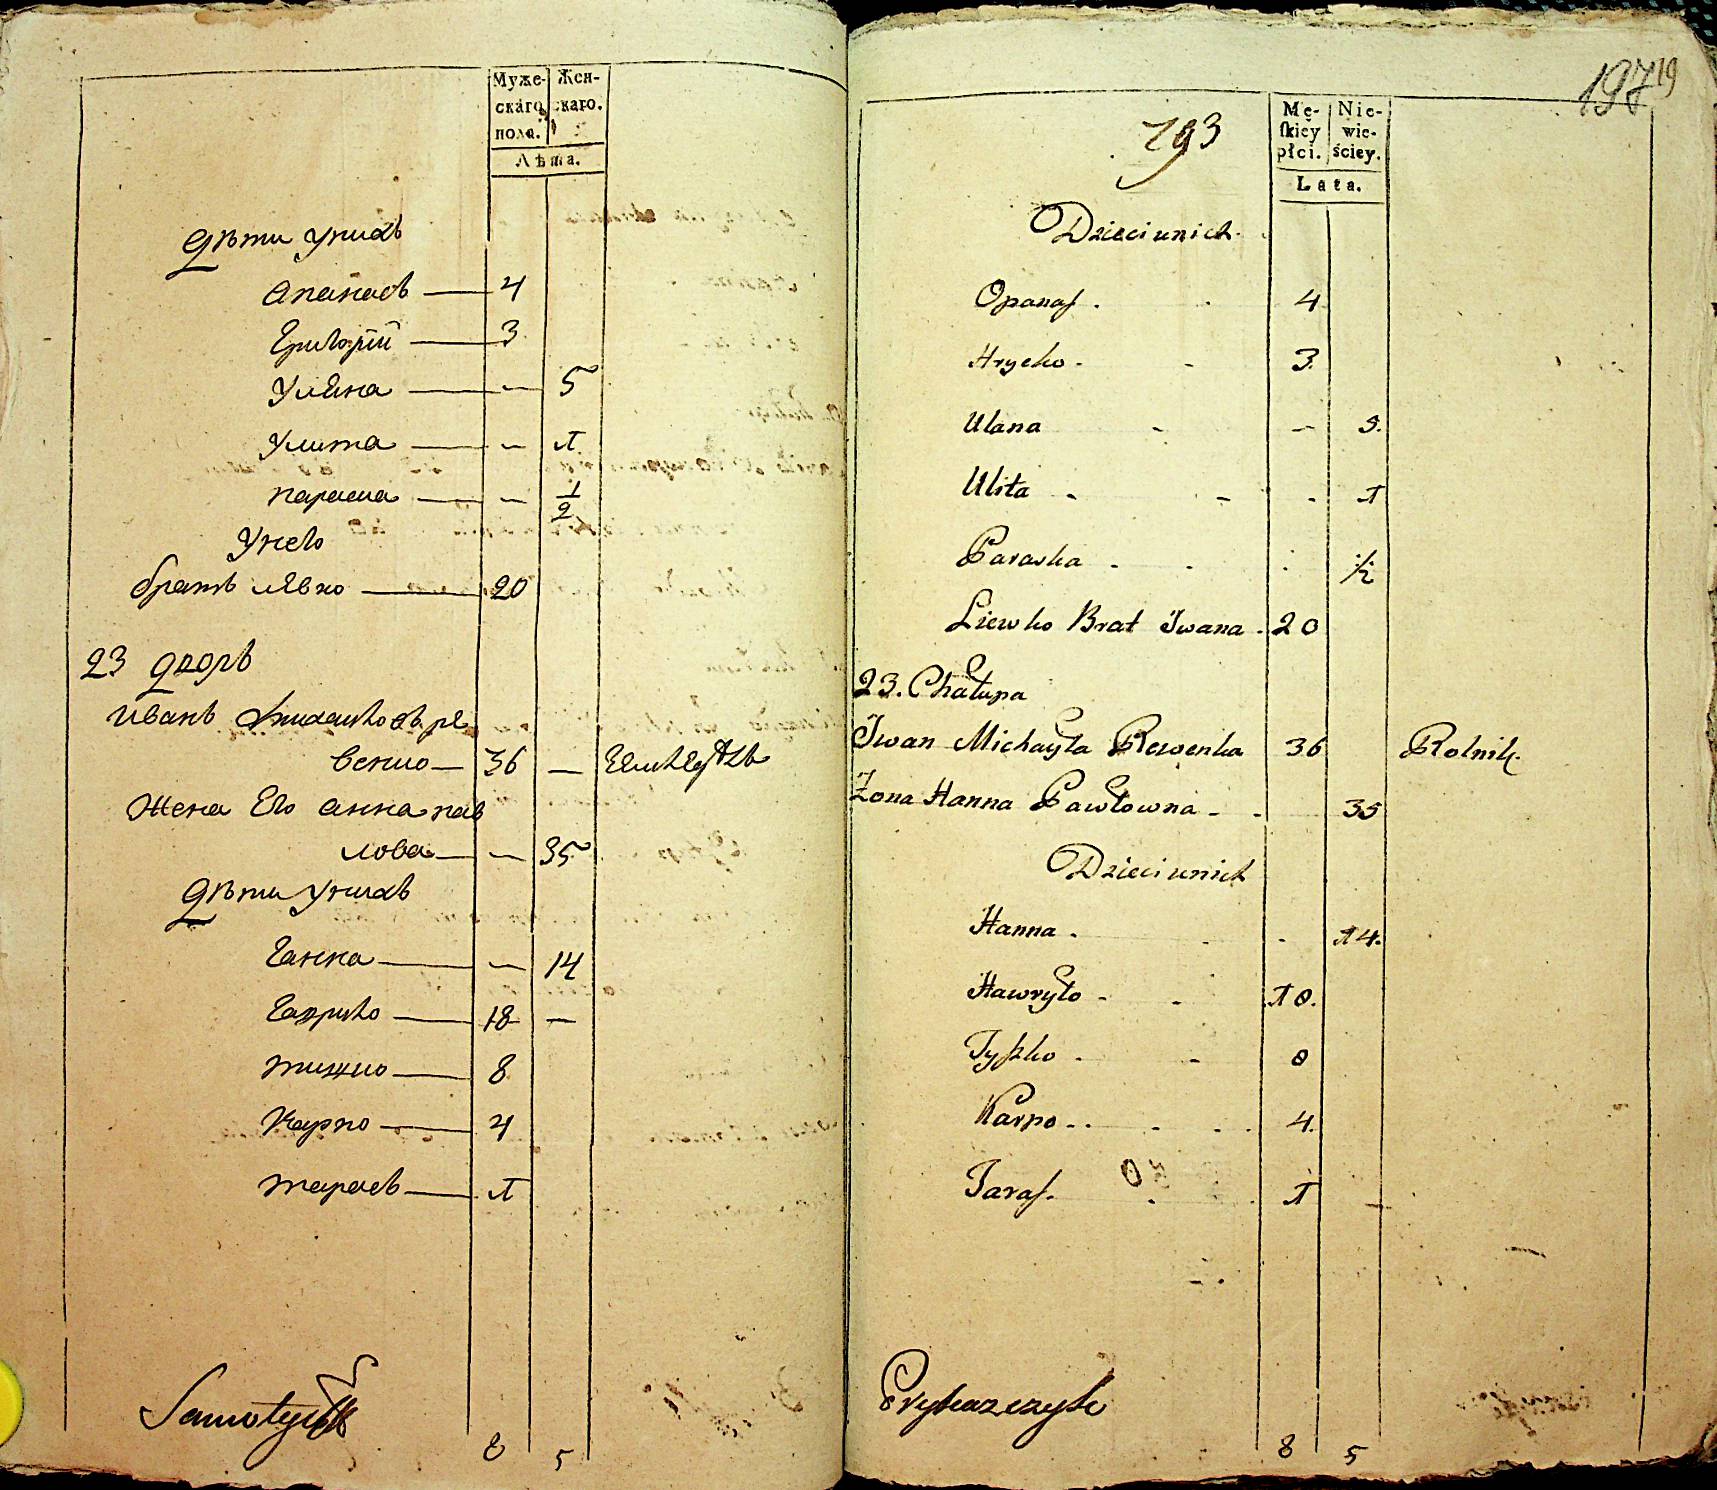 Муже-
скаго
пола.
Жен-
скаго.
Лѣта.
Дѣти у нихъ
Апанасъ — 4
Григорiй — 3
Уляна — — 5
Улита — — 1
параска — — 1/2
У него
братъ лявко — 20
23 дворъ
Иванъ Михайловъ ре
венко — 36 —
Жена Его Анна пав
лова — — 35
Дѣти у нихъ
Ганна — — 14
Гаврило — 18 —
тишко — 8
Карпо — 4
тарасъ — 1
8 5
197 19
793
Mę-
skiey
płci.
Nie-
wie-
ściey.
Lata.
Dzieci u nich
Opanas . 4
Hrycko - - 3.
Ulana - – 5.
Ulita - - - 1
Paraska . . . 1/2
Liewko Brat Jwana . 20
23. Chałupa
Jwan Michayła Rewenka 36 Rolnik.
Żona Hanna Pawłowna - - 35
Dzieci u nich
Hanna . - - 14.
Hawryło - - 18.
Tyszko - - 8
Karpo - . - - . 4.
Taras . . . 1
Prykazczyk
8 5